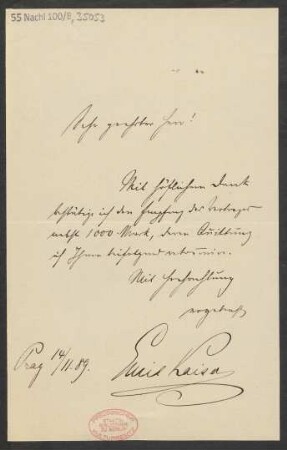 55 Nachl 100/B, 35053
Sehr geehrter Herr!
Mit höflichem Dank
bestätige ich den Empfang des Vertrages
nebst 1000 Mark, deren Quittung
ich Ihnen beifolgend retournire.
Mit Hochachtung
ergebenst
Prag 14/11.89.
Emil Kaiser